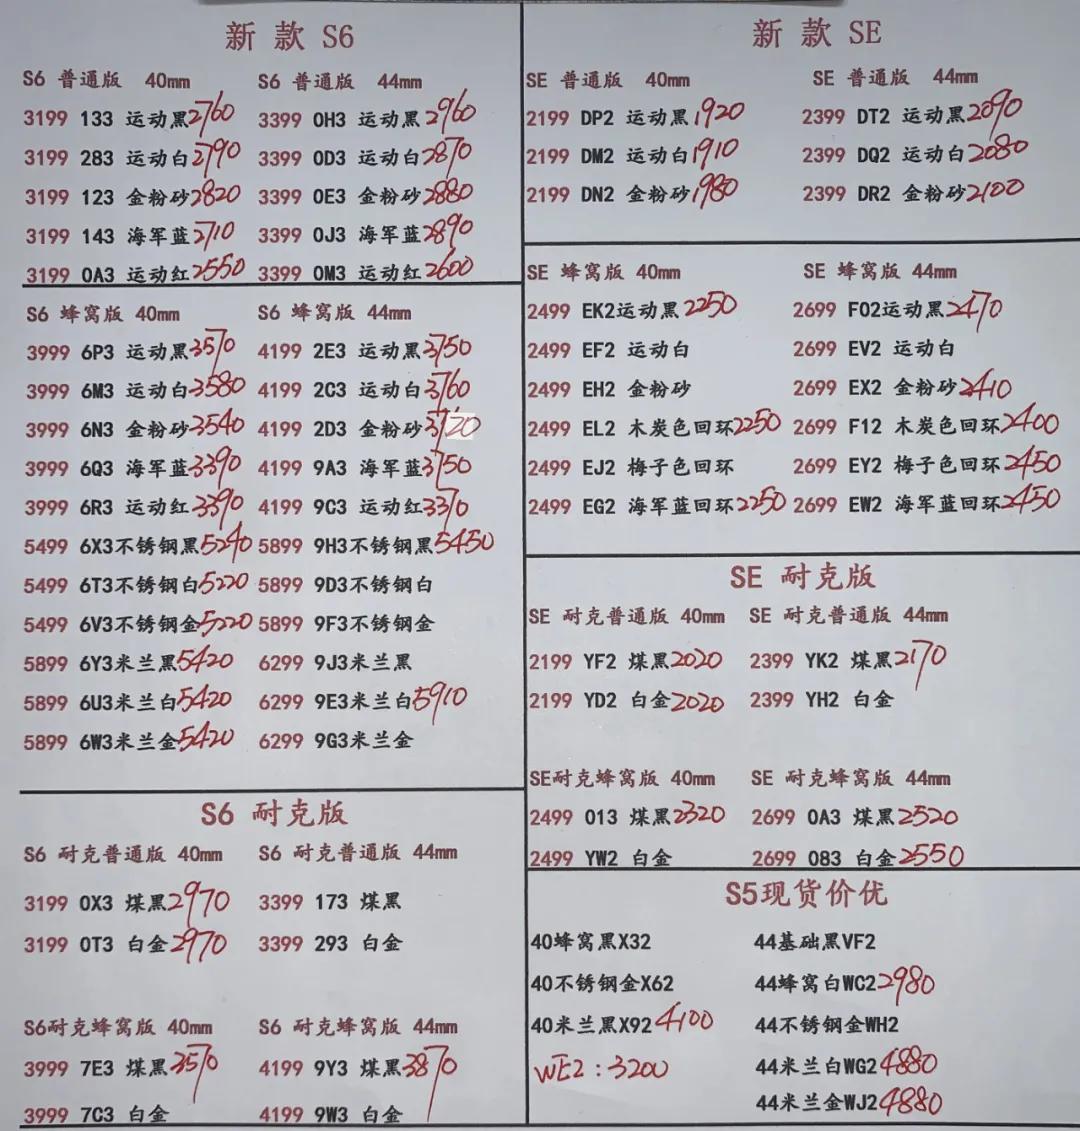 新 款 S6
S6 普通版 40mm
3199 133 运动黑2760
3199 283 运动白2790
3199 123 金粉砂2820
3199 143 海军蓝2710
3199 0A3 运动红2550
S6 普通版 44mm
3399 0H3 运动黑2960
3399 0D3 运动白2870
3399 0E3 金粉砂2880
3399 0J3 海军蓝2890
3399 0M3 运动红2600
S6 蜂窝版 40mm
3999 6P3 运动黑3570
3999 6M3 运动白3580
3999 6N3 金粉砂3540
3999 6Q3 海军蓝3390
3999 6R3 运动红3390
5499 6X3不锈钢黑5240
5499 6T3不锈钢白5220
5499 6V3不锈钢金5220
5899 6Y3米兰黑5420
5899 6U3米兰白5420
5899 6W3米兰金5420
S6 蜂窝版 44mm
4199 2E3 运动黑3750
4199 2C3 运动白3760
4199 2D3 金粉砂3720
4199 9A3 海军蓝3750
4199 9C3 运动红3370
5899 9H3不锈钢黑5450
5899 9D3不锈钢白
5899 9F3不锈钢金
6299 9J3米兰黑
6299 9E3米兰白5910
6299 9G3米兰金
S6 耐克版
S6 耐克普通版 40mm
3199 0X3 煤黑2970
3199 0T3 白金2970
S6 耐克普通版 44mm
3399 173 煤黑
3399 293 白金
S6耐克蜂窝版 40mm
3999 7E3 煤黑3570
3999 7C3 白金
S6 耐克蜂窝版 44mm
4199 9Y3 煤黑3870
4199 9W3 白金
新 款 SE
SE 普通版 40mm
2199 DP2 运动黑1920
2199 DM2 运动白1910
2199 DN2 金粉砂1980
SE 普通版 44mm
2399 DT2 运动黑2090
2399 DQ2 运动白2080
2399 DR2 金粉砂2100
SE 蜂窝版 40mm
2499 EK2运动黑2250
2499 EF2 运动白
2499 EH2 金粉砂
2499 EL2 木炭色回环2250
2499 EJ2 梅子色回环
2499 EG2 海军蓝回环2250
SE 蜂窝版 44mm
2699 F02运动黑2470
2699 EV2 运动白
2699 EX2 金粉砂2410
2699 F12 木炭色回环2400
2699 EY2 梅子色回环2450
2699 EW2 海军蓝回环2450
SE 耐克版
SE 耐克普通版 40mm
2199 YF2 煤黑2020
2199 YD2 白金2020
SE 耐克普通版 44mm
2399 YK2 煤黑2170
2399 YH2 白金
SE耐克蜂窝版 40mm
2499 013 煤黑2320
2499 YW2 白金
SE 耐克蜂窝版 44mm
2699 0A3 煤黑2520
2699 083 白金2550
S5现货价优
40蜂窝黑X32
40不锈钢金X62
40米兰黑X92 4100
WE2:3200
44基础黑VF2
44蜂窝白WC2 2980
44不锈钢金WH2
44米兰白WG2 4880
44米兰金WJ2 4880